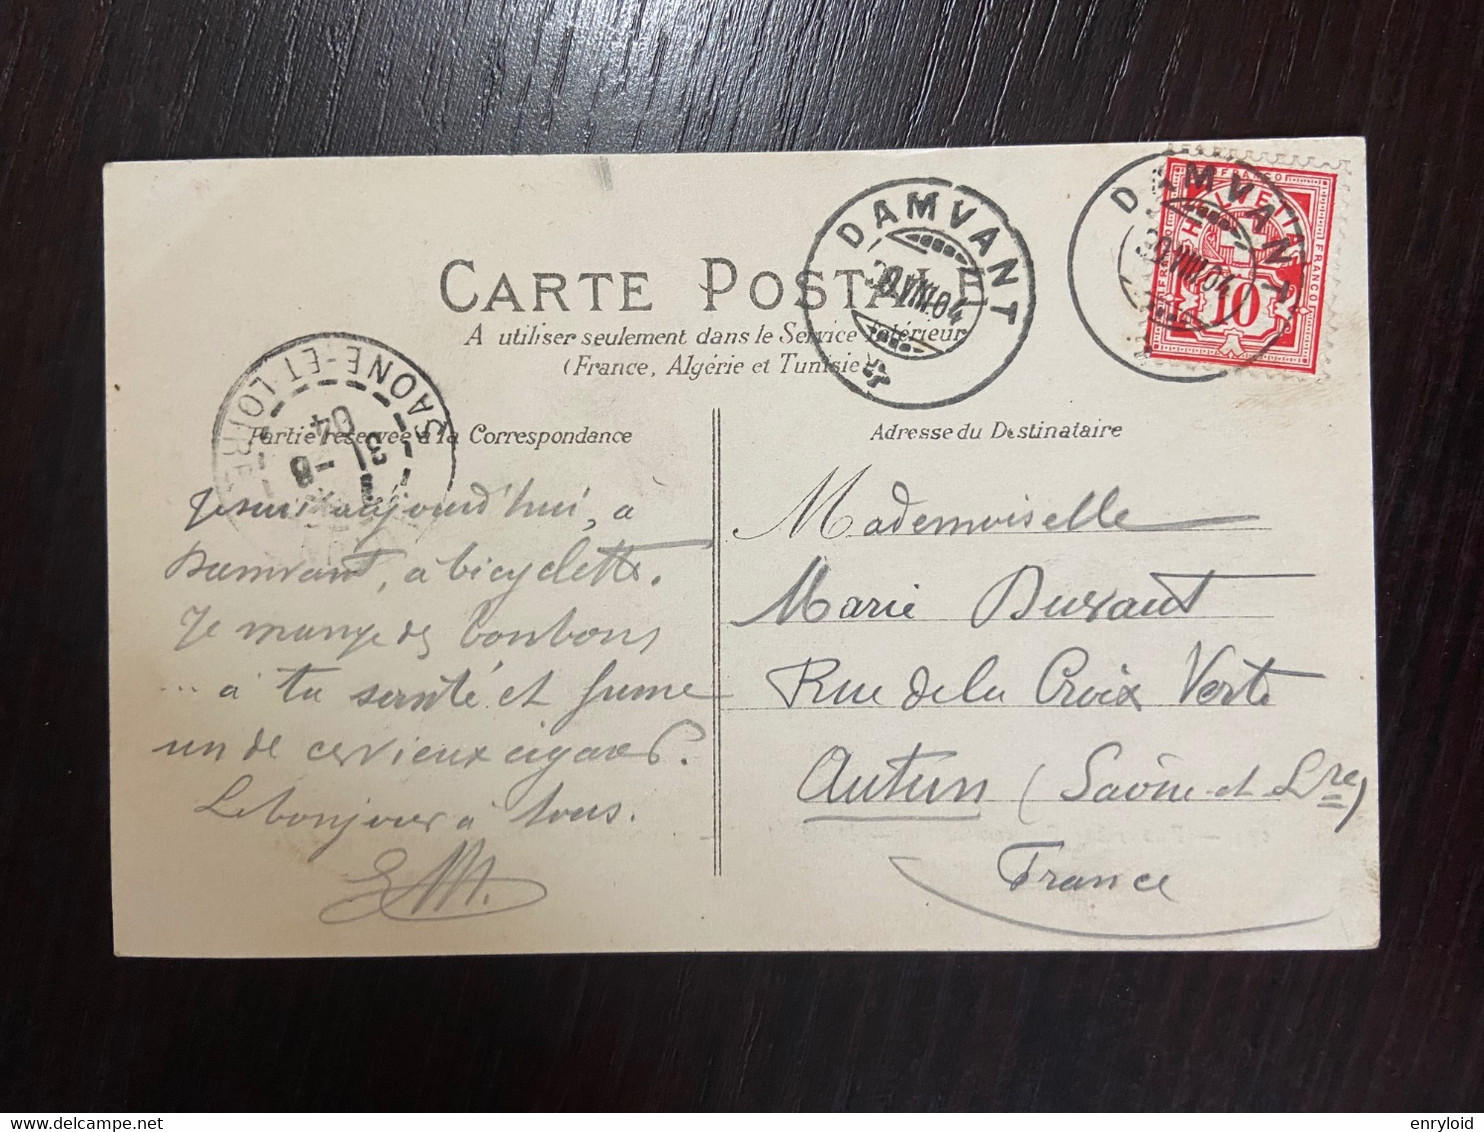 CARTE POSTALE
A utiliser seulement dans le Service intérieur
(France, Algérie et Tunisie)
Partie réservée à la Correspondance
Adresse du Destinataire
DAMVANT
30.VIII.04
DAMVANT
30.VIII.04
FRANCO
HELVETIA
FRANCO
10
SAONE-ET-LOIRE
31 -8
04
Je suis aujourd'hui, à
Damvant, à bicyclette.
Je mange des bonbons
... à ta santé et fume
un de ces vieux cigares.
Le bonjour à tous.
Mademoiselle
Marie Durant
Rue de la Croix Verte
Autun (Saône et Lre)
France
enryloid